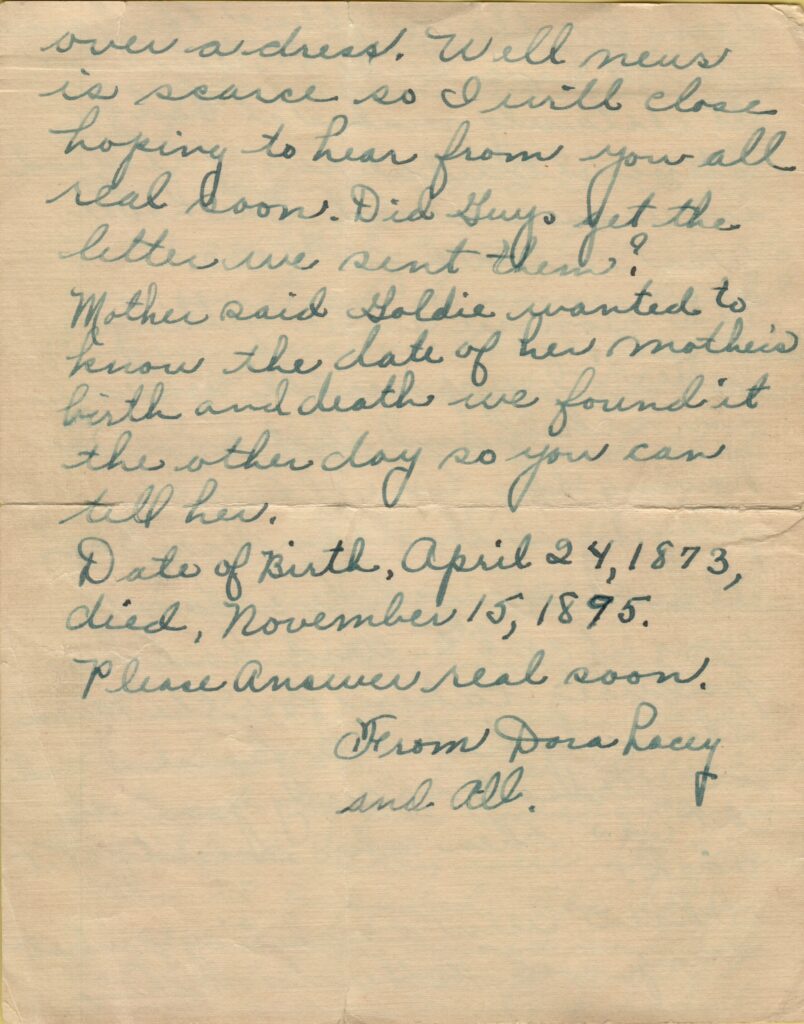 over a dress. Well news
is scarce so I will close
hoping to hear from you all
real soon. Did Guys get the
letter we sent them?
Mother said Goldie wanted to
know the date of her mother's
birth and death we found it
the other day so you can
tell her.
Date of Birth, April 24, 1873,
died, November 15, 1895.
Please Answer real soon.
From Dora Lacey
and All.